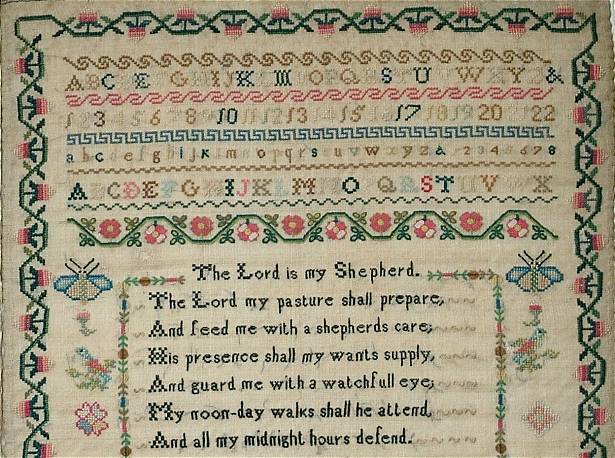 A B C E G H I J K M O P Q R S U W X Y &
1 2 3 4 5 6 7 8 9 10 11 12 13 14 15 16 17 18 19 20 22
a b c d e f g h i j k l m n o p q r s t u v w x y z & 2 3 4 5 6 7 8
A B C D E F G H I J K L M N O Q R S T U V X
The Lord is my Shepherd.
The Lord my pasture shall prepare,
And feed me with a shepherds care;
His presence shall my wants supply,
And guard me with a watchfull eye;
My noon-day walks shall he attend,
And all my midnight hours defend.